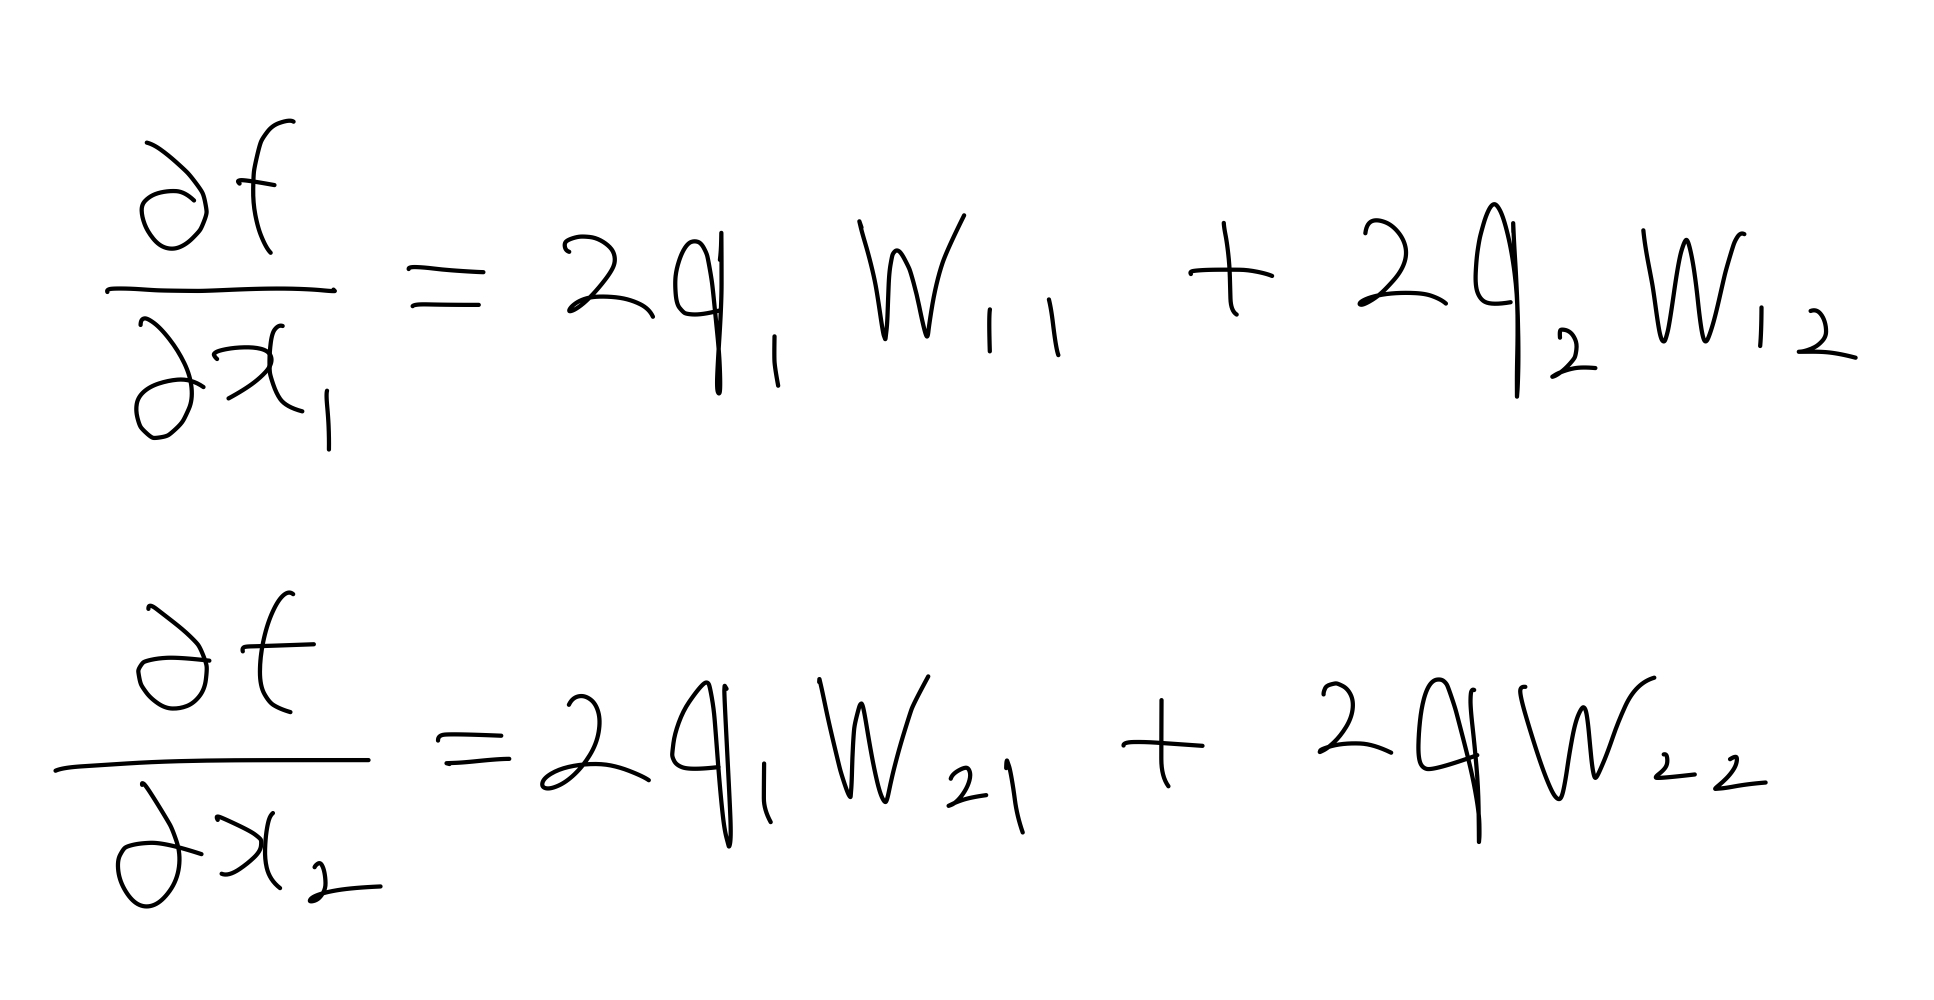 ∂f/∂x₁ = 2q₁ W₁₁ + 2q₂ W₁₂
∂f/∂x₂ = 2q₁ W₂₁ + 2q W₂₂